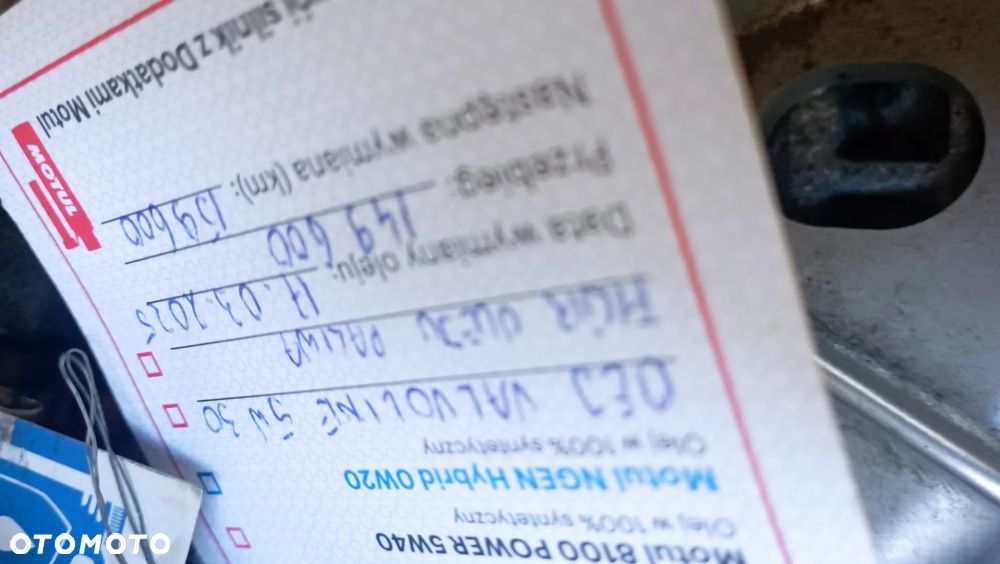 Motul 8100 POWER 5W40
Olej w 100% syntetyczny
Motul NGEN Hybrid 0W20
Olej w 100% syntetyczny
OLEJ VALVOLINE 5W30
FILTR OLEJU PALIWA
Data wymiany oleju: 17.03.2025
Przebieg: 149 600
Następna wymiana (km): 159 600
silnik z Dodatkami Motul
MOTUL
OTOMOTO